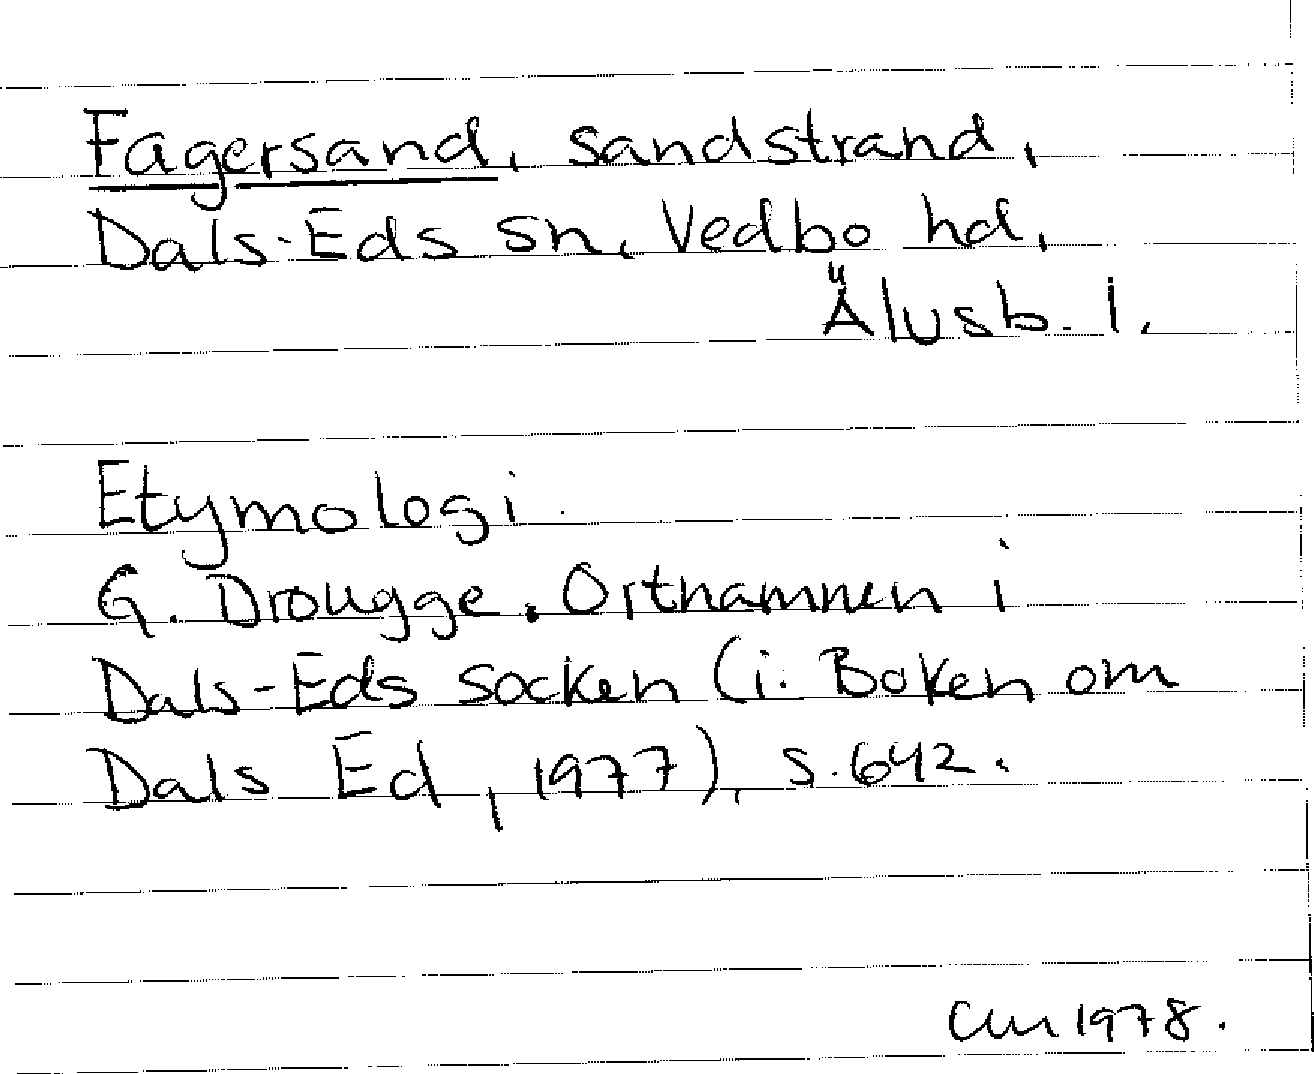 Fagersand, sandstrand,
Dals-Eds sn, Vedbo hd,
Älvsb. l.
Etymologi.
G. Drougge. Ortnamnen i
Dals-Eds socken (i: Boken om
Dals Ed, 1977), s. 642.
1978.